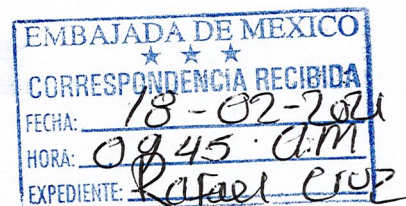 EMBAJADA DE MEXICO
CORRESPONDENCIA RECIBIDA
FECHA: 18-02-2021
HORA: 0945 AM
EXPEDIENTE: Rafael Cruz